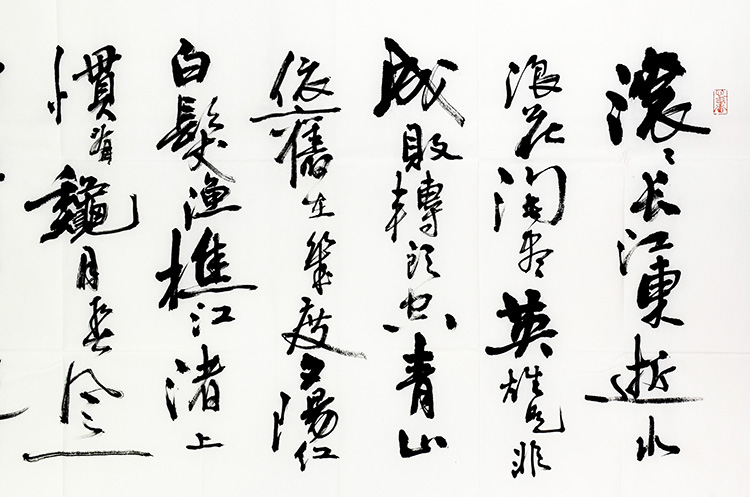 滾〻长江東逝水
浪花淘盡英雄是非
成敗轉頭空青山
依舊在幾度夕陽红
白髮渔樵江渚上
慣看龝月春风一